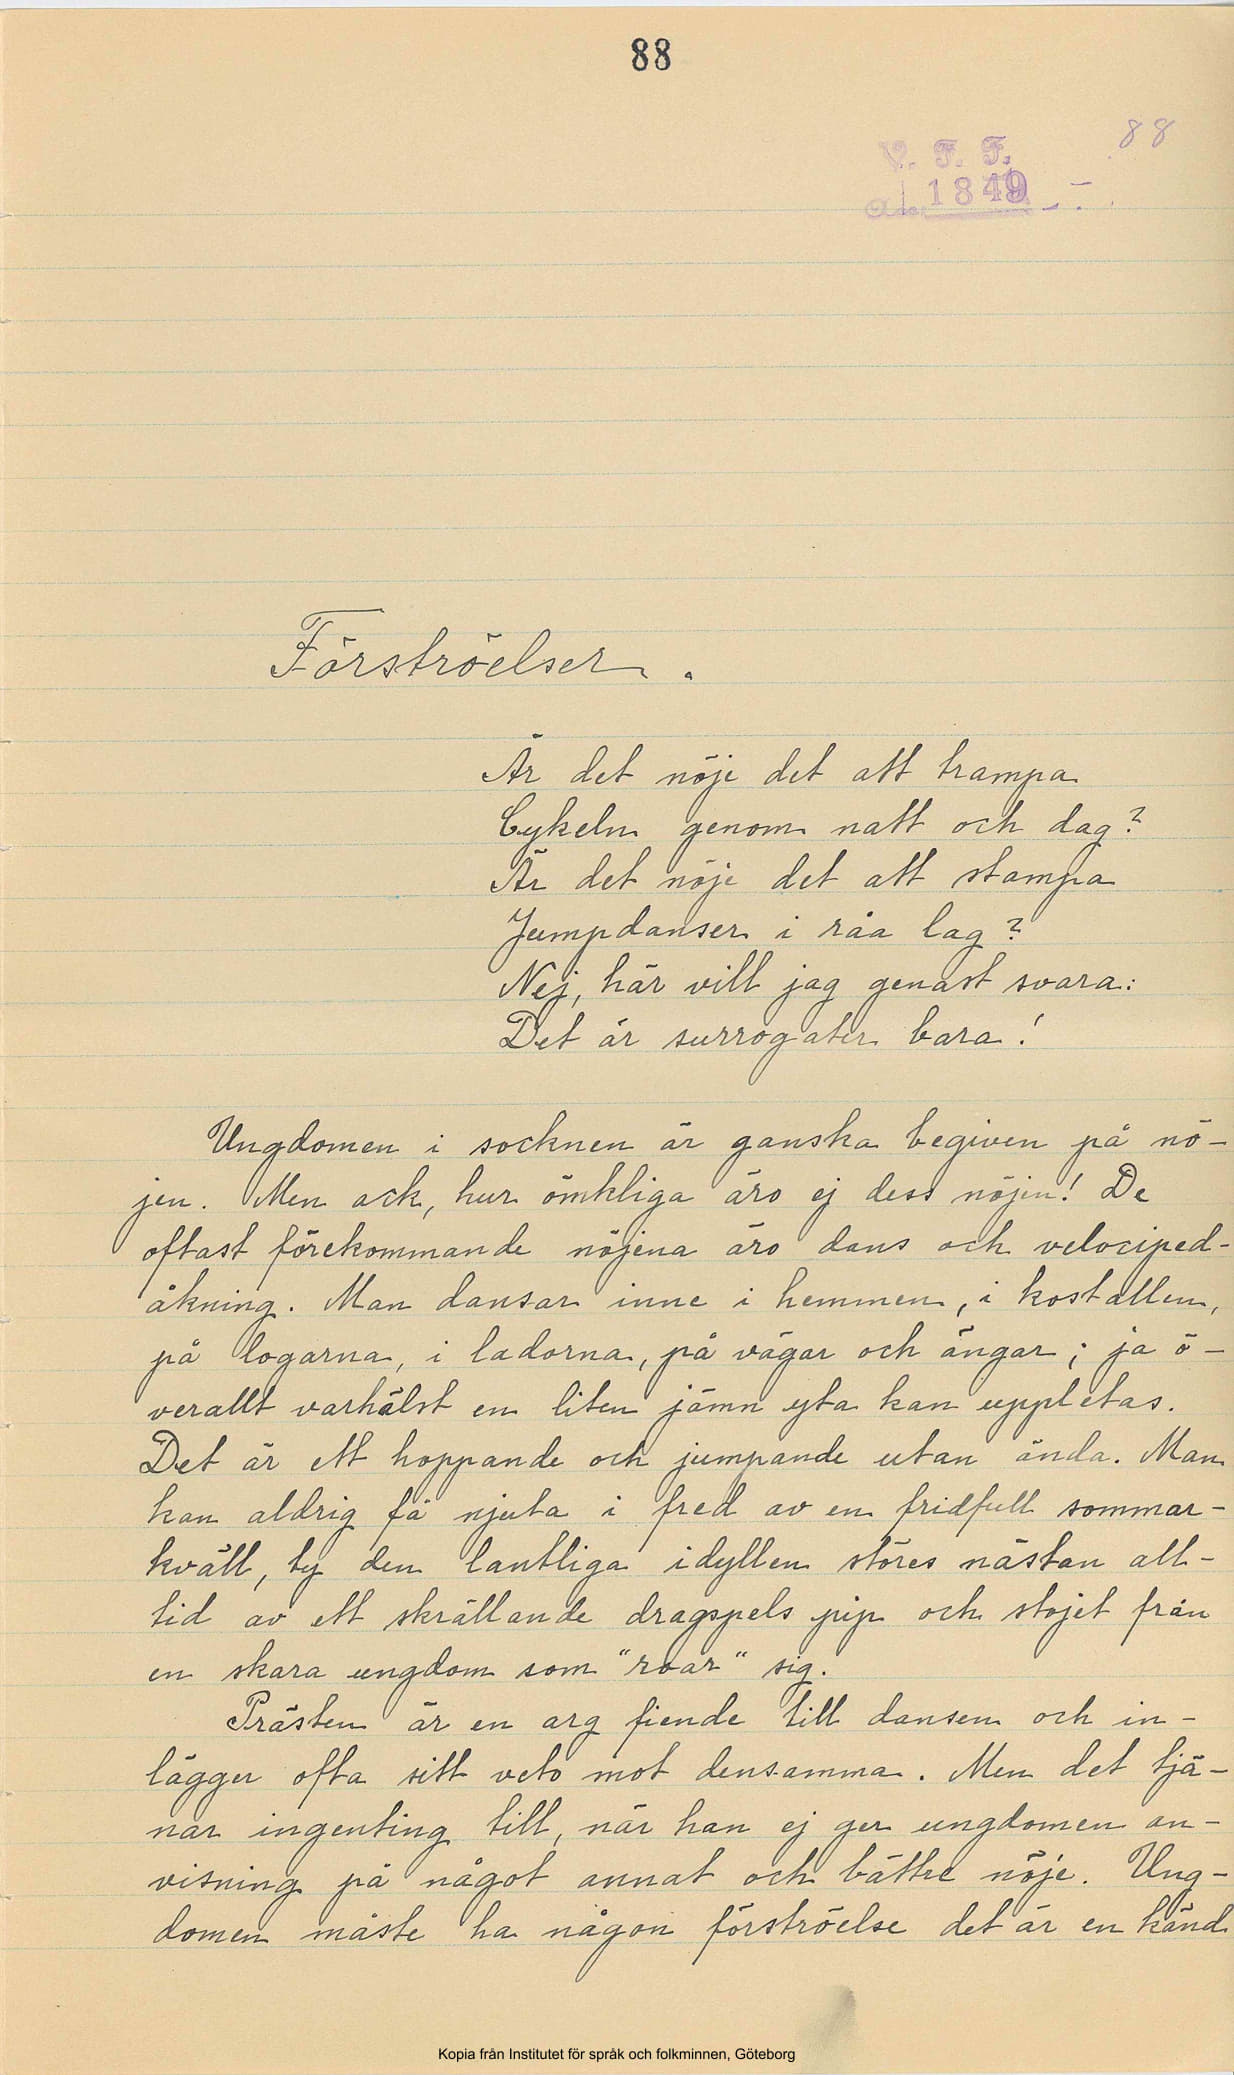 88
88
V. F. F.
1849
Förströelser.
Är det nöje det att trampa
Cykeln genom natt och dag?
Är det nöje det att stampa
Jumpdanser i råa lag?
Nej, här vill jag genast svara:
Det är surrogater bara!
Ungdomen i socknen är ganska begiven på nö-
jen. Men ack, hur ömkliga äro ej dess nöjen! De
oftast förekommande nöjena äro dans och velociped-
åkning. Man dansar inne i hemmen, i kostallen,
på logarna, i ladorna, på vägar och ängar; ja ö-
verallt varhälst en liten jämn yta kan uppletas.
Det är ett hoppande och jumpande utan ända. Man
kan aldrig få njuta i fred av en fridfull sommar-
kväll, ty den lantliga idyllen störes nästan all-
tid av ett skrällande dragspels pip och stojet från
en skara ungdom som "roar" sig.
Prästen är en arg fiende till dansen och in-
lägger ofta sitt veto mot densamma. Men det tjä-
nar ingenting till, när han ej ger ungdomen an-
visning på något annat och bättre nöje. Ung-
domen måste ha någon förströelse det är en känd
Kopia från Institutet för språk och folkminnen, Göteborg